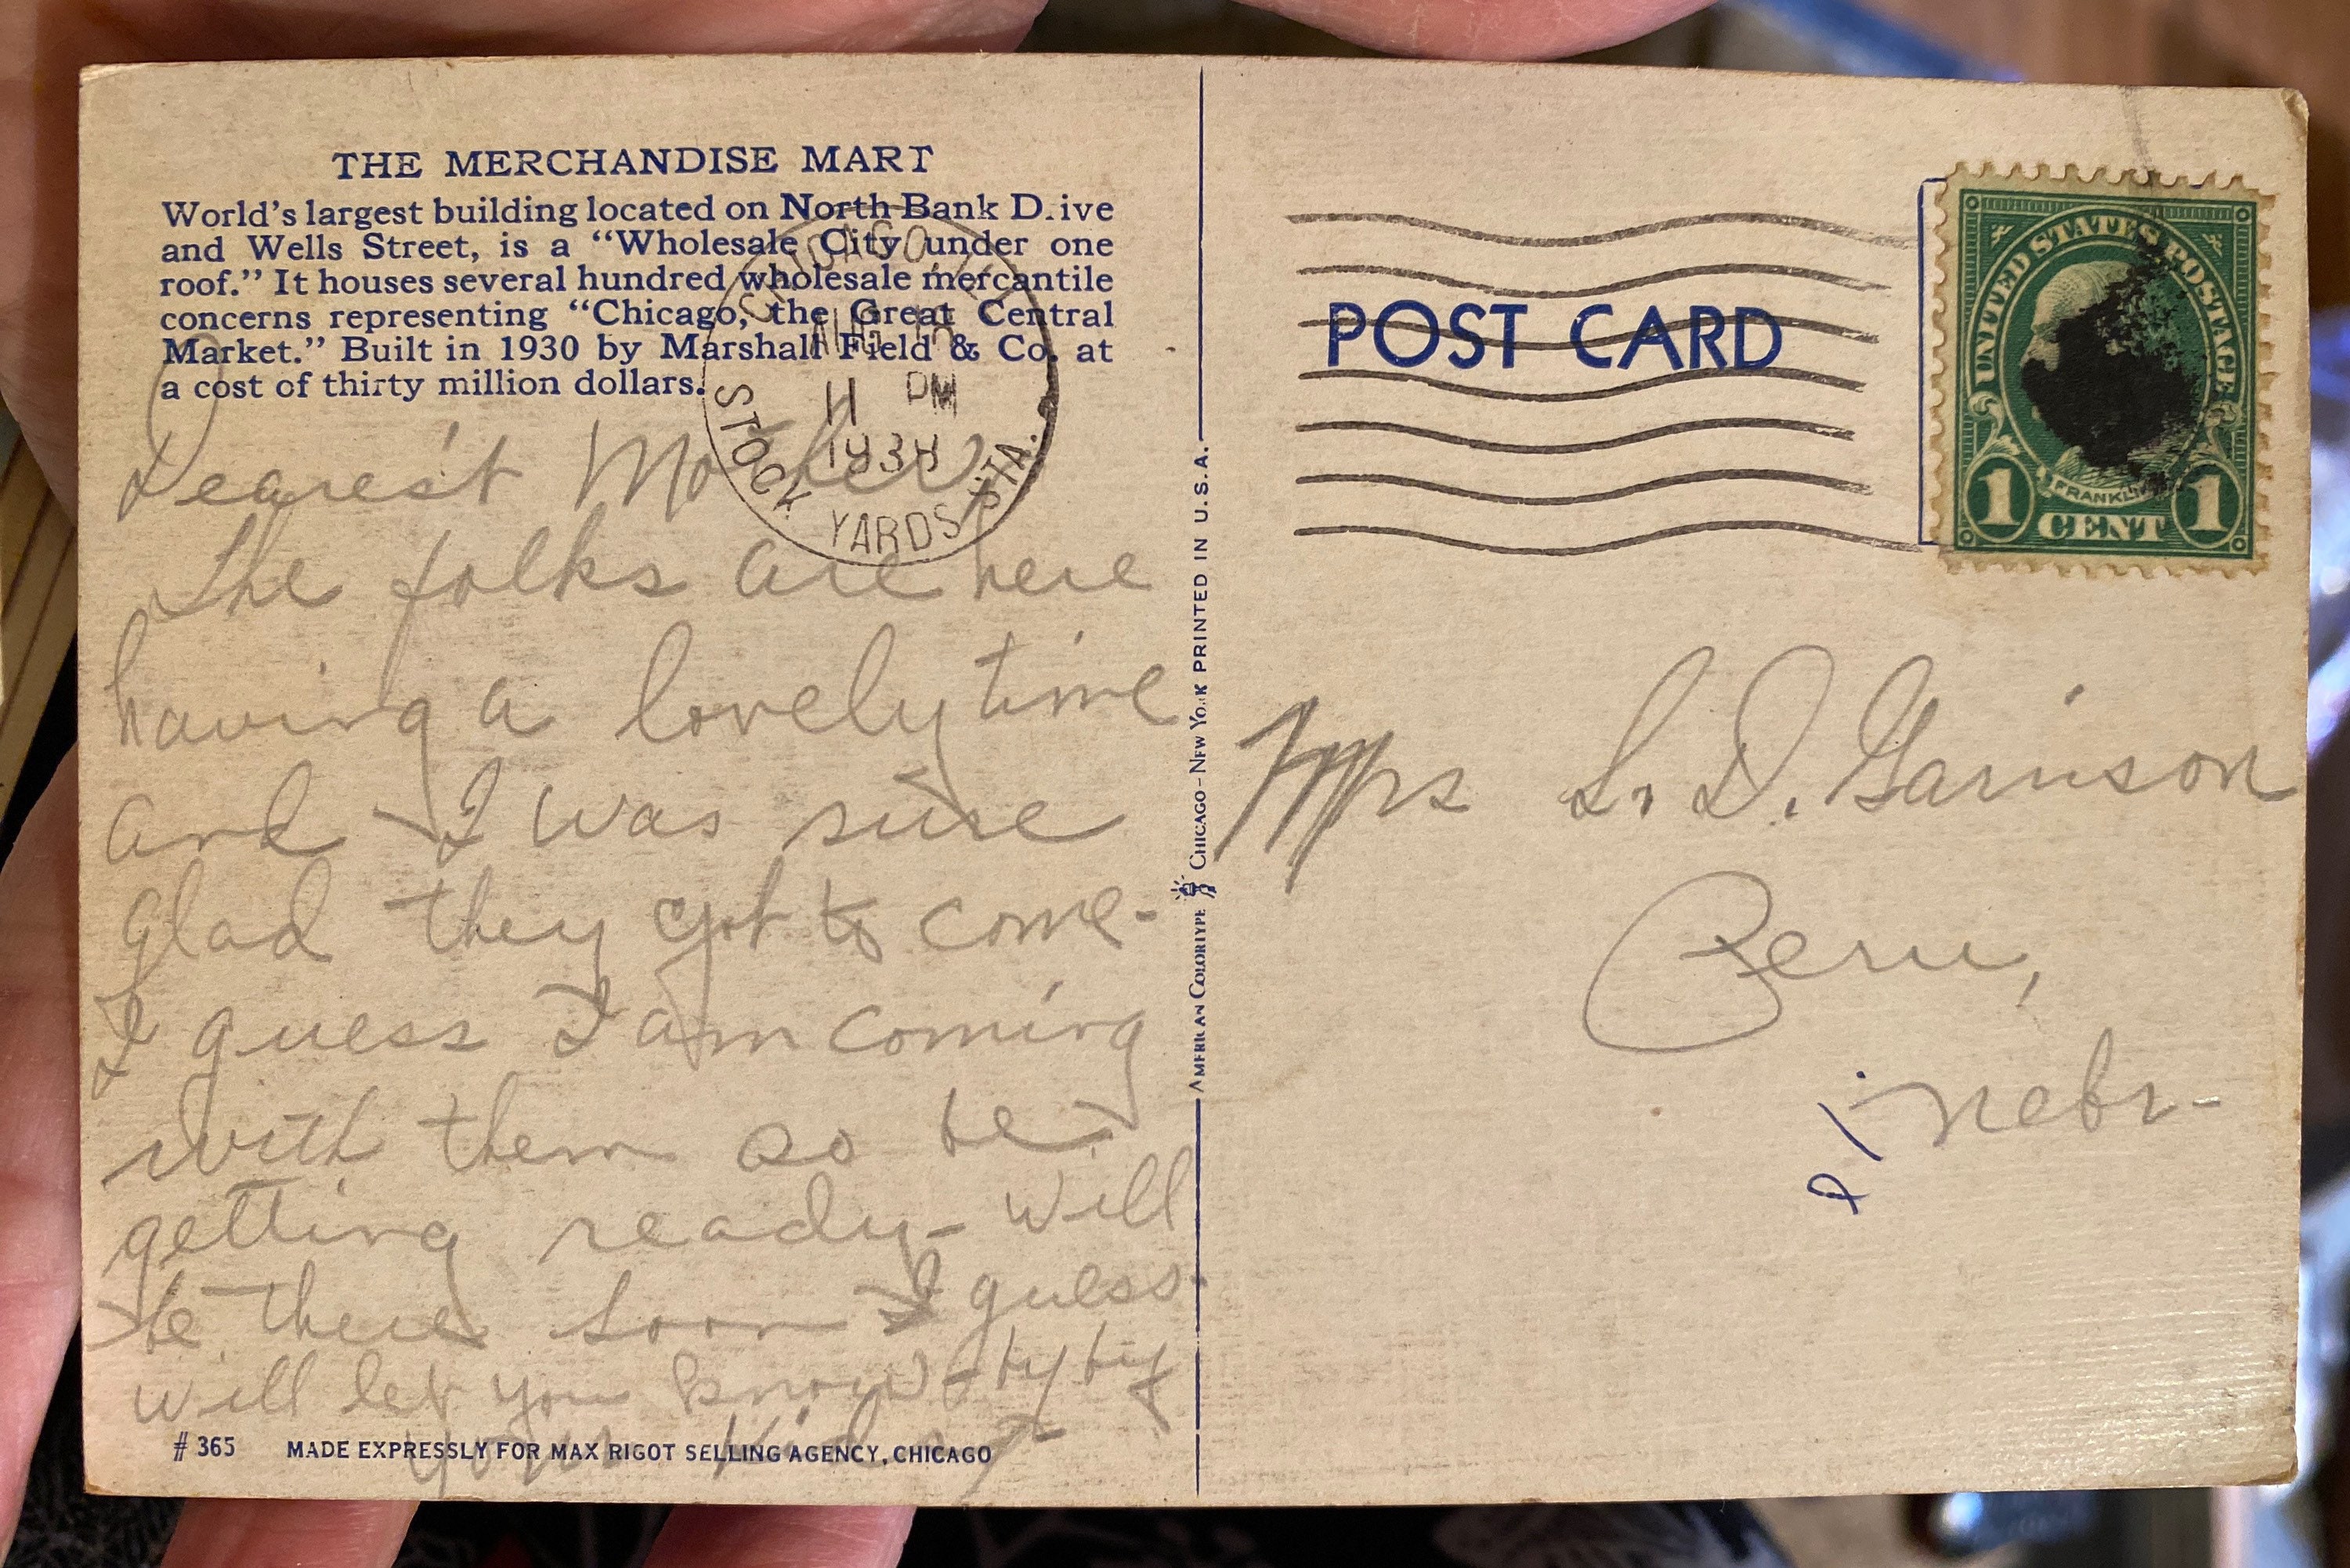 THE MERCHANDISE MART
World's largest building located on North Bank D.ive
and Wells Street, is a “Wholesale City under one
roof.” It houses several hundred wholesale mercantile
concerns representing “Chicago, the Great Central
Market.” Built in 1930 by Marshall Field & Co. at
a cost of thirty million dollars.
CHICAGO, ILL
AUG
11 PM
1934
STOCK YARDS STA.
Dearest Mother,
The folks are here
having a lovely time
and I was sure
glad they got to come-
I guess I am coming
with them so be
getting ready- will
be there soon I guess.
will let you know - by by
Your Kid
# 365 MADE EXPRESSLY FOR MAX RIGOT SELLING AGENCY, CHICAGO
AMERICAN COLORTYPE CHICAGO-NEW YORK PRINTED IN U.S.A.
POST CARD
UNITED STATES POSTAGE
FRANKLIN
1 CENT 1
Mrs L. D. Garrison
Peru,
Nebr-